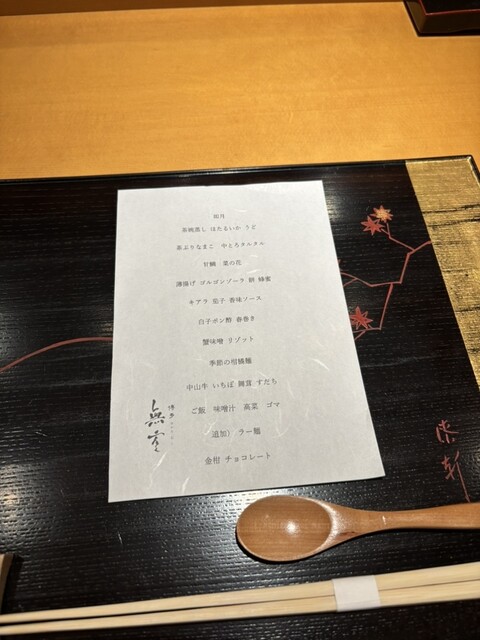 如月
茶碗蒸し ほたるいか うど
茶ぶりなまこ 中とろタルタル
甘鯛 菜の花
薄揚げ ゴルゴンゾーラ 餅 蜂蜜
キアラ 茄子 香味ソース
白子ポン酢 春巻き
蟹味噌 リゾット
季節の相麺
中山牛 いちぼ 舞茸 すだち
ご飯 味噌汁 高菜 ゴマ
追加） ラー麺
金柑 チョコレート
博多